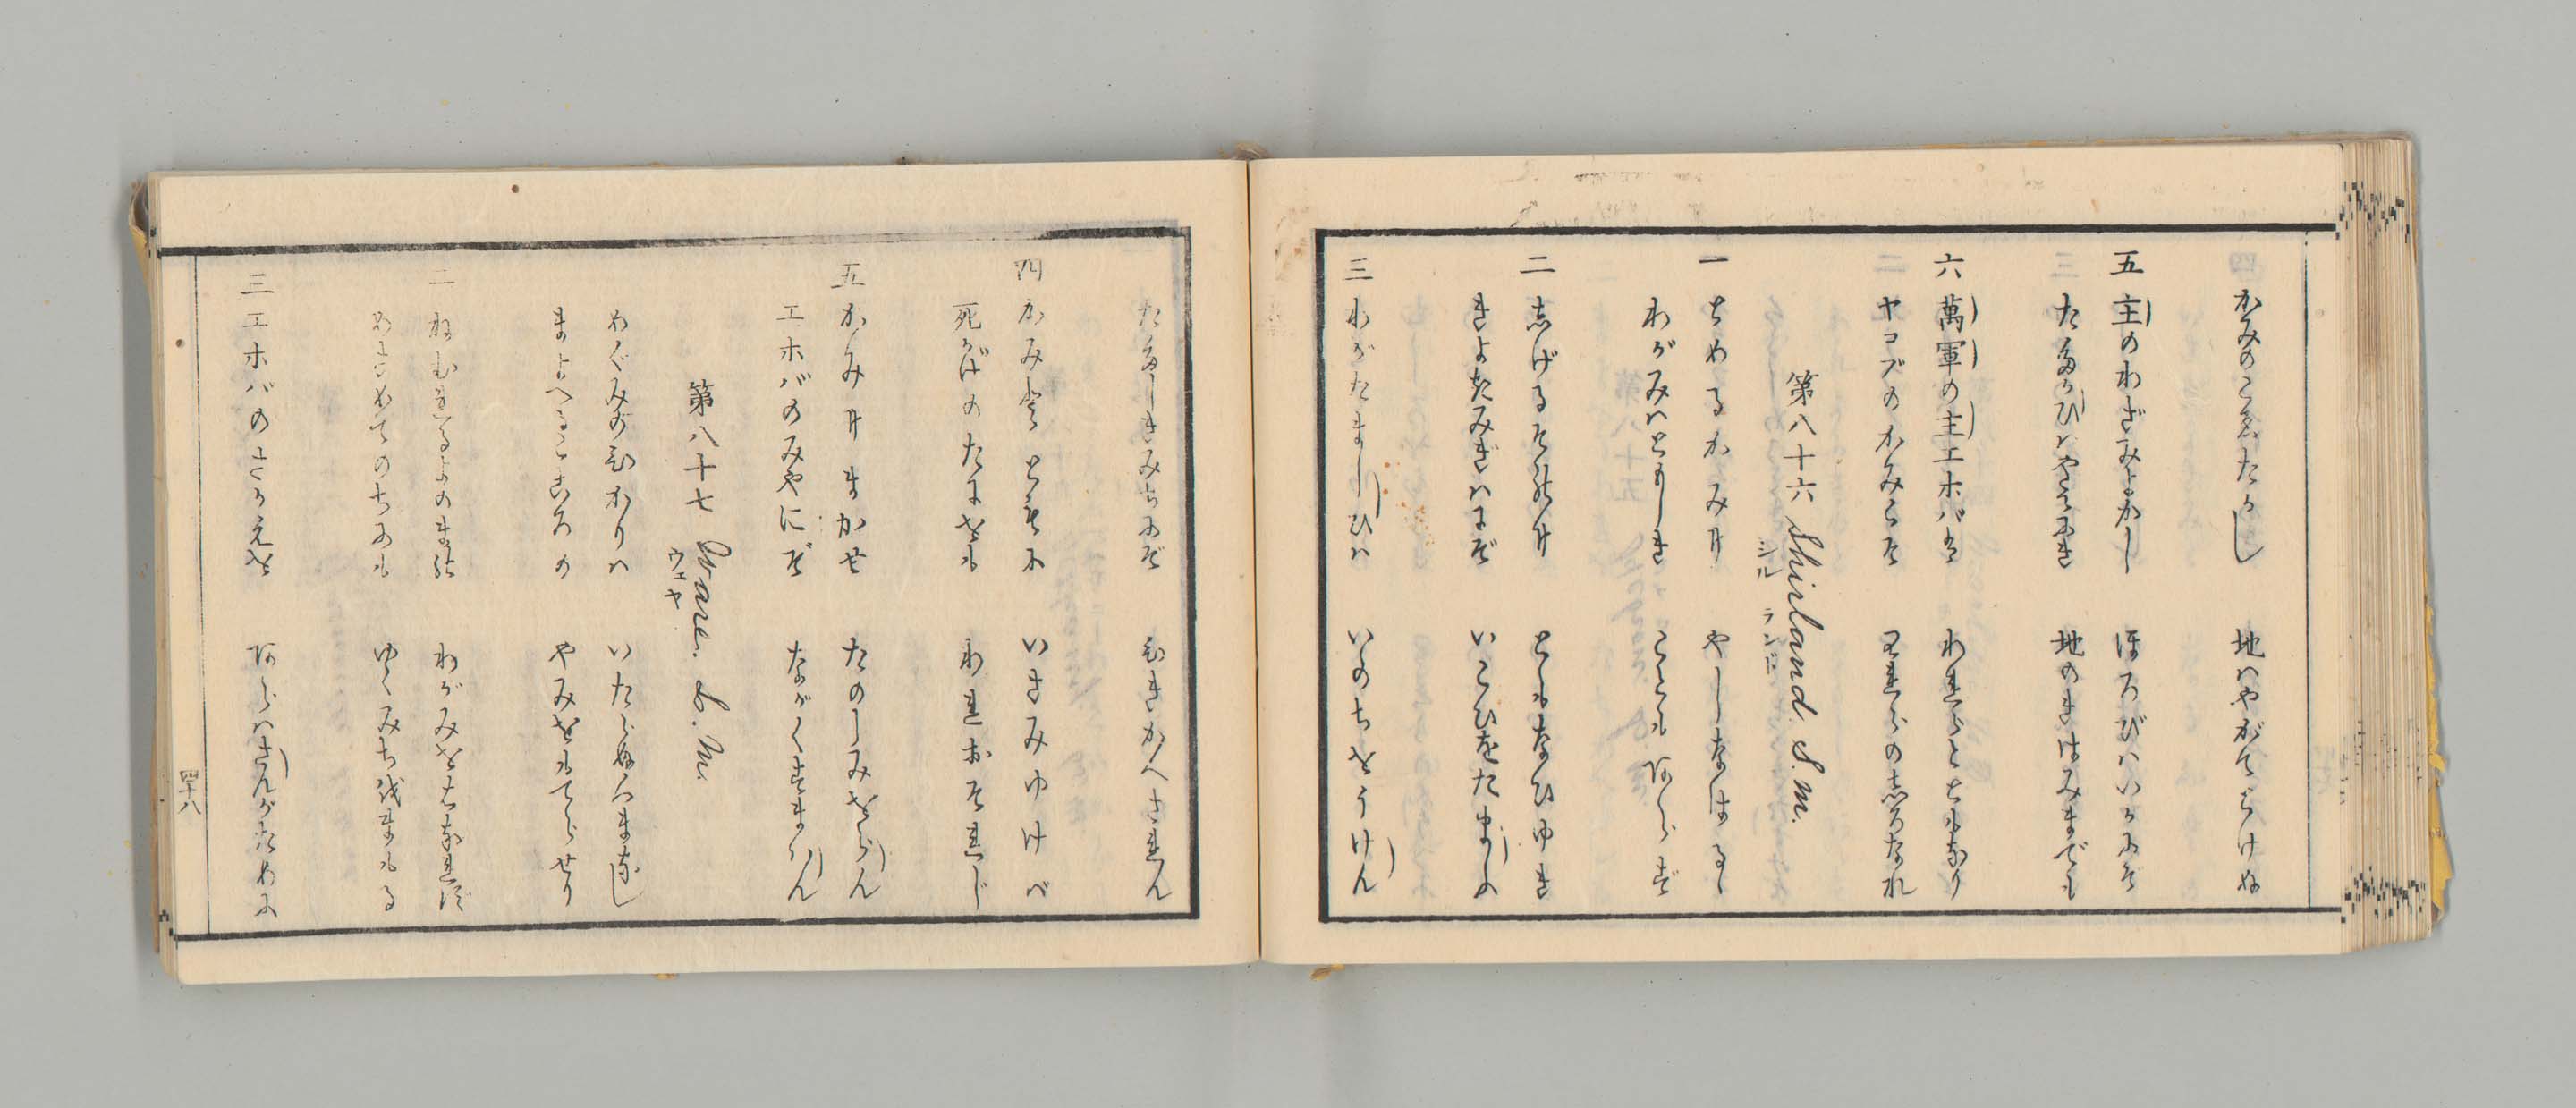 かみのこゑたかし 地ハやがてとけぬ
五 主のわざみよかし ほろびハいかにぞ
たゝかひハやみにき 地のきはみまでも
六 萬軍の主エホバは われらとともなり
ヤコブのかみこそ われらのしろなれ
第八十六 Shirland. S.M.
シルランド
一 とめるかみハ やしなはるゝ
わがみハともしき こともあらず
二 しげるそのに ともなひゆき
きよきみぎハにぞ いこひをたまふ
三 わがたましひハ いのちをうけん
たゞしきみちにぞ ひきかへされん
四 かみともに いさみゆけバ
死かげのたにをも われおそれじ
五 かみにまかせ たのしみをらん
エホバのみやにぞ ながくすまはん
第八十七 Ware. L.M.
ウェヤ
めぐみのひかりハ いたらぬくまなし
まよへるこころの やみをもてらせり
二 ねむれるよのまに わがみを
めさめてのちにも ゆくみちまもる
三 エホバのさかえを あらハさんがために
四十八